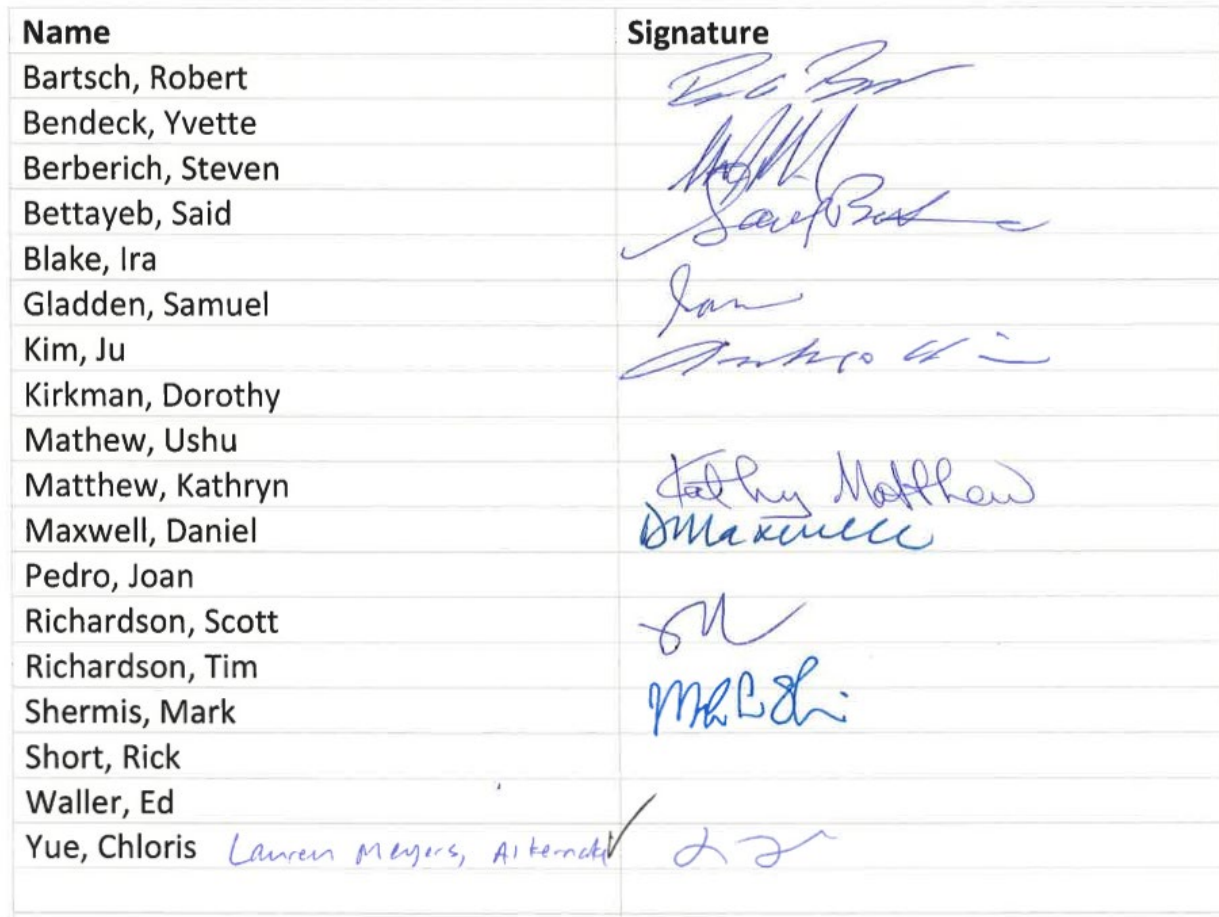 Name Signature
Bartsch, Robert
Bendeck, Yvette
Berberich, Steven
Bettayeb, Said
Blake, Ira
Gladden, Samuel
Kim, Ju
Kirkman, Dorothy
Mathew, Ushu
Matthew, Kathryn Kathy Matthew
Maxwell, Daniel DMaxwell
Pedro, Joan
Richardson, Scott
Richardson, Tim
Shermis, Mark
Short, Rick
Waller, Ed
Yue, Chloris Lauren Meyers, Alternate